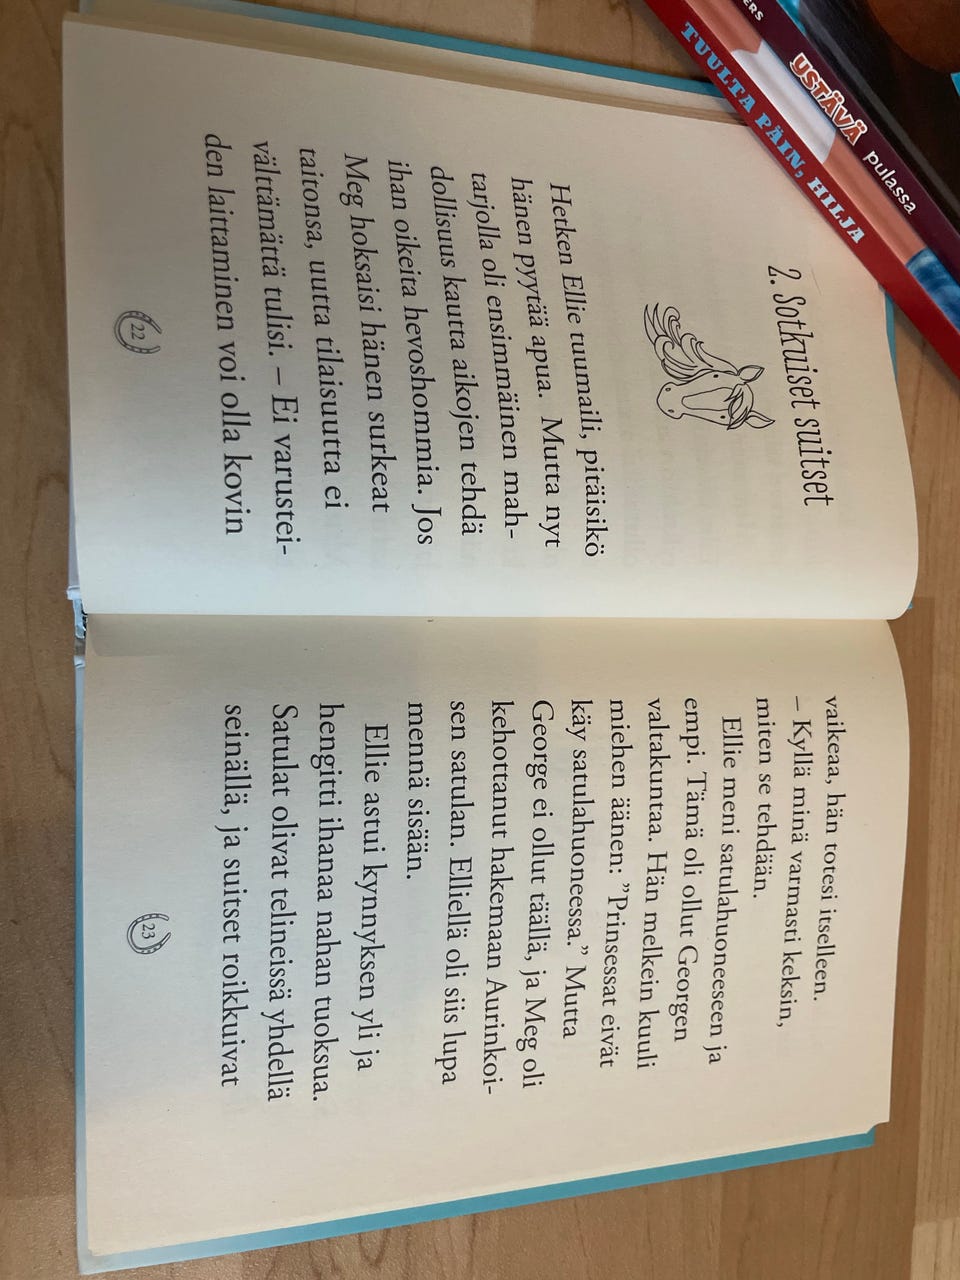 2. Sotkuiset suitset
Hetken Ellie tuumaili, pitäisikö
hänen pyytää apua. Mutta nyt
tarjolla oli ensimmäinen mah-
dollisuus kautta aikojen tehdä
ihan oikeita hevoshommia. Jos
Meg hoksaisi hänen surkeat
taitonsa, uutta tilaisuutta ei
välttämättä tulisi. – Ei varustei-
den laittaminen voi olla kovin
22
vaikeaa, hän totesi itselleen.
– Kyllä minä varmasti keksin,
miten se tehdään.
Ellie meni satulahuoneeseen ja
empi. Tämä oli ollut Georgen
valtakuntaa. Hän melkein kuuli
miehen äänen: ”Prinsessat eivät
käy satulahuoneessa.” Mutta
George ei ollut täällä, ja Meg oli
kehottanut hakemaan Aurinkoi-
sen satulan. Elliellä oli siis lupa
mennä sisään.
Ellie astui kynnyksen yli ja
hengitti ihanaa nahan tuoksua.
Satulat olivat telineissä yhdellä
seinällä, ja suitset roikkuivat
23
ERS
USTÄVÄ pulassa
TUULTA PÄIN, HILJA